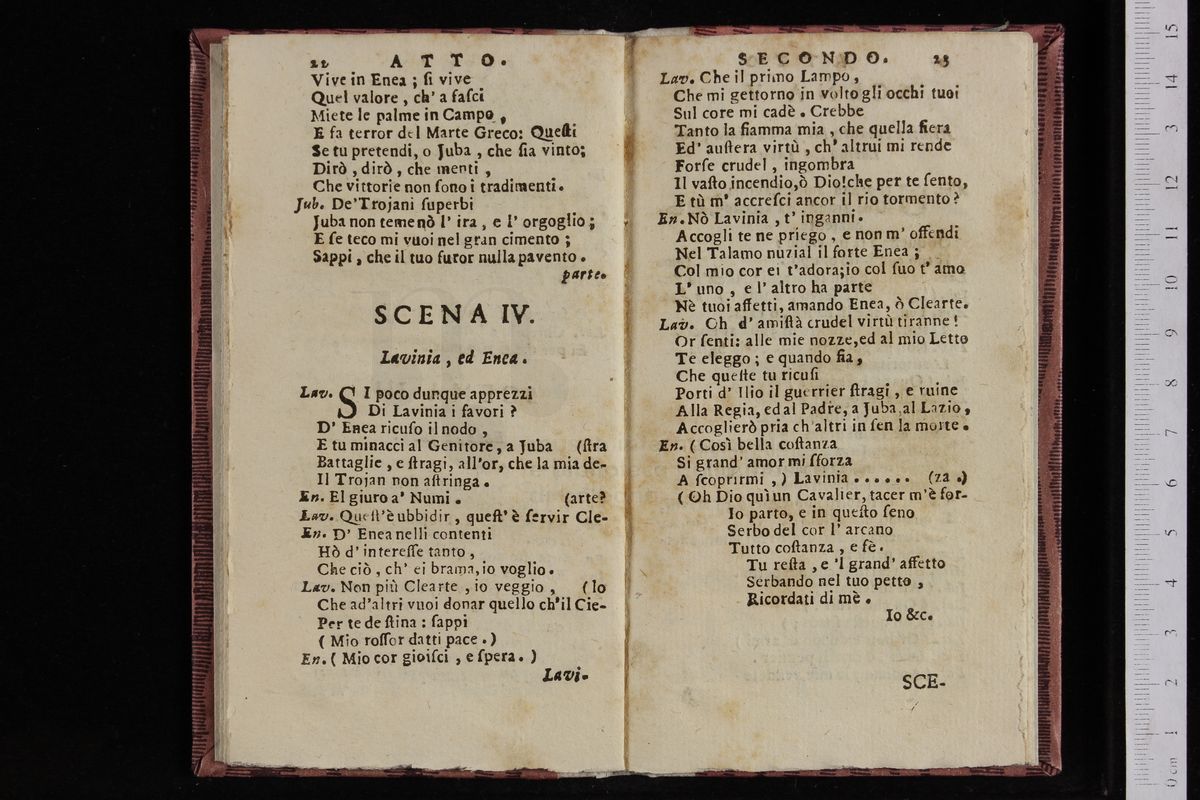 22 ATTO.
Vive in Enea ; ſi vive
Quel valore , ch' a faſci
Miete le palme in Campo ,
E fa terror del Marte Greco: Queſti
Se tu pretendi, o Juba , che ſia vinto;
Dirò , dirò , che menti ,
Che vittorie non ſono i tradimenti.
Jub. De'Trojani ſuperbi
Juba non teme nò l' ira , e l' orgoglio ;
E ſe teco mi vuoi nel gran cimento ;
Sappi , che il tuo furor nulla pavento .
parte.
SCENA IV.
Lavinia , ed Enea .
Lav. SI poco dunque apprezzi
Di Lavinia i favori ?
D' Enea ricuſo il nodo ,
E tu minacci al Genitore, a Juba (ſtra
Battaglie , e ſtragi, all'or, che la mia de-
Il Trojan non aſtringa .
En. El giuro a' Numi . (arte?
Lav. Queſt'è ubbidir , queſt' è ſervir Cle-
En. D' Enea nelli contenti
Hò d' intereſſe tanto ,
Che ciò , ch' ei brama, io voglio .
Lav. Non più Clearte , io veggio , (lo
Che ad'altri vuoi donar quello ch'il Cie-
Per te deſtina : ſappi
( Mio roſſor datti pace .)
En. ( Mio cor gioiſci , e ſpera . )
Lavi-
SECONDO. 23
Lav. Che il primo Lampo ,
Che mi gettorno in volto gli occhi tuoi
Sul core mi cadè . Crebbe
Tanto la fiamma mia , che quella fiera
Ed' auſtera virtù , ch' altrui mi rende
Forſe crudel , ingombra
Il vaſto incendio,ò Dio!che per te ſento,
E tù m' accreſci ancor il rio tormento ?
En. Nò Lavinia , t' inganni .
Accogli te ne priego , e non m' offendi
Nel Talamo nuzial il forte Enea ;
Col mio cor ei t'adora;io col ſuo t' amo
L' uno , e l' altro ha parte
Nè tuoi affetti, amando Enea, ò Clearte.
Lav. Oh d' amiſtà crudel virtù tiranne !
Or ſenti: alle mie nozze,ed al mio Letto
Te eleggo ; e quando fia ,
Che queſte tu ricuſi
Porti d' Ilio il guerrier ſtragi , e ruine
Alla Regia, ed al Padre, a Juba, al Lazio ,
Accoglierò pria ch'altri in ſen la morte .
En. ( Così bella coſtanza
Si grand' amor mi sforza
A ſcoprirmi , ) Lavinia . . . . . . (za .)
( Oh Dio quì un Cavalier, tacer m'è for-
Io parto, e in queſto ſeno
Serbo del cor l' arcano
Tutto coſtanza , e fè .
Tu reſta , e 'l grand' affetto
Serbando nel tuo petto ,
Ricordati di mè .
Io &c.
SCE-